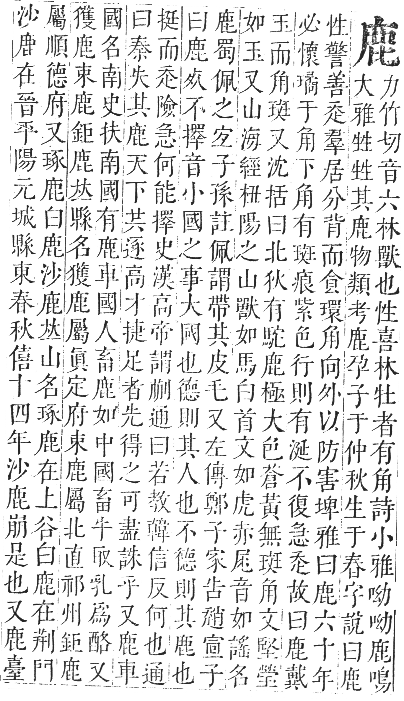 鹿
力竹切音六林獸也性喜林牡者有角詩小雅呦呦鹿鳴
大雅甡甡其鹿物類考鹿孕子于仲秋生于春字說曰鹿
性警善走羣居分背而食環角向外以防害埤雅曰鹿六十年
必懷璚于角下角有斑痕紫色行則有涎不復急走故曰鹿戴
玉而角斑又沈括曰北狄有駝鹿極大色蒼黃無斑角文堅瑩
如玉又山海經杻陽之山獸如馬白首文如虎赤尾音如謠名
鹿蜀佩之宜子孫註佩謂帶其皮毛又左傳鄭子家告趙宣子
曰鹿死不擇音小國之事大國也德則其人也不德則其鹿也
挺而走險急何能擇史漢高帝謂蒯通曰若教韓信反何也通
曰秦失其鹿天下共逐高才捷足者先得之可盡誅乎又鹿車
國名南史扶南國有鹿車國人畜鹿如中國畜牛取乳爲酪又
獲鹿束鹿鉅鹿竝縣名獲鹿屬眞定府束鹿屬北直祁州鉅鹿
屬順德府又琢鹿白鹿沙鹿竝山名琢鹿在上谷白鹿在荆門
沙鹿在晉平陽元城縣東春秋僖十四年沙鹿崩是也又鹿臺